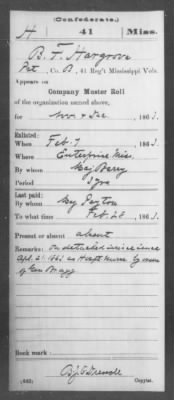 (Confederate.)
H 41 Miss.
B. F. Hargrove
Pvt, Co. B, 41 Reg't Mississippi Vols.
Appears on
Company Muster Roll
of the organization named above,
for Nov & Dec, 186
Enlisted:
When Feb. 7, 186
Where Enterprise Miss.
By whom Maj Berry
Period 3 yrs
Last paid:
By whom Maj Peyton
To what time Feb 28, 186
Present or absent absent
Remarks: On detached service since
Apl. 21 1862 as Hospt. Nurse by order
of Gen Bragg
Book mark:
(642) Copyist.